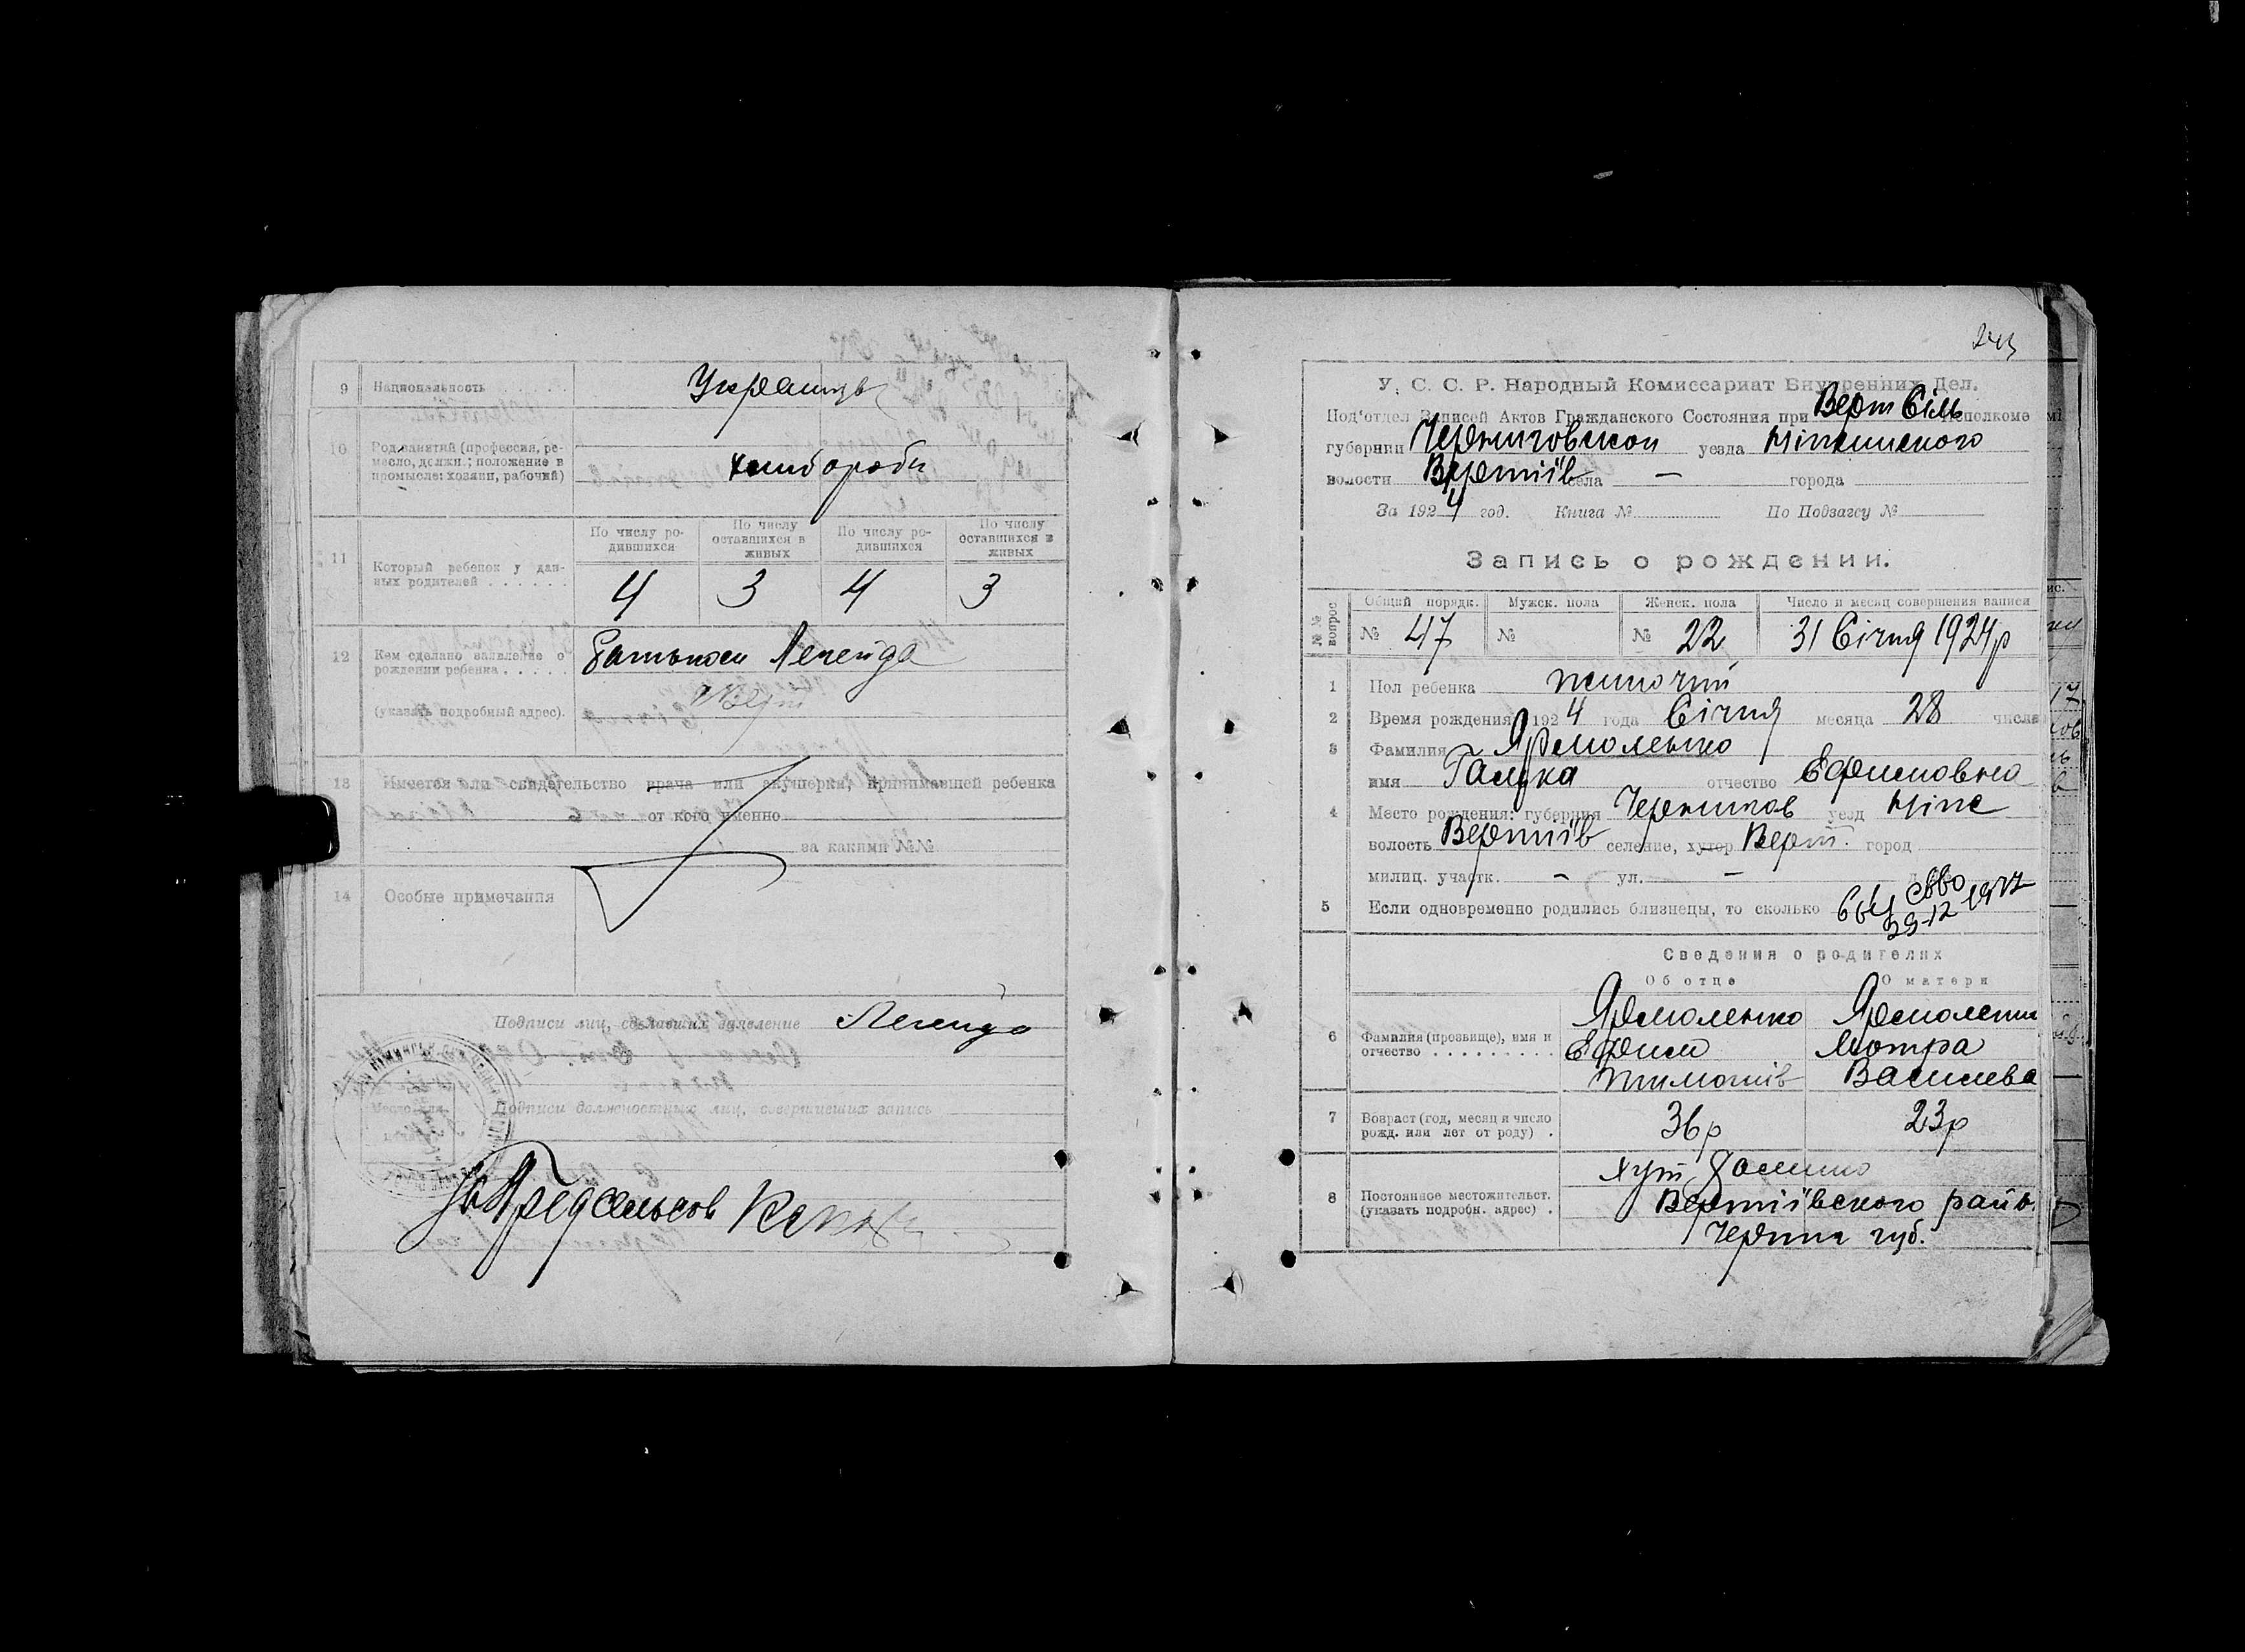 9 Национальность Украинцы
10 Род занятий (профессия, ре-
месло, должн.; положение в
промысле: хозяин, рабочий) хлибороби
11 Который ребенок у дан-
ных родителей
По числу ро-
дившихся
По числу
оставшихся в
живых
По числу ро-
дившихся
По числу
оставшихся в
живых
4 3 4 3
12 Кем сделано заявление о
рождении ребенка Батьком Легейда
(указать подробный адрес). Верт
13 Имеется или свидетельство врача или акушерки, принимавшей ребенка
от кого именно
за какими №№
14 Особые примечания
Подписи лиц, сделавших заявление Легейда
Место для
печати
Подписи должностных лиц, совершивших запись
Предсельсов
243
У. С. С. Р. Народный Комиссариат Внутренних Дел.
Под'отдел Записей Актов Гражданского Состояния при Верт Сіль Исполкоме
губернии Черниговской уезда Ніжинського
волости Вертіїв села — города
За 1924 год. Книга № По Подзагсу №
Запись о рождении.
№№ вопрос
Общий порядк. Мужск. пола Женск. пола Число и месяц совершения записи
№ 47 № № 22 31 Січня 1924р
1 Пол ребенка жиночий
2 Время рождения 1924 года Січня месяца 28 числа
3 Фамилия Ярмоленко
имя Галька отчество Ефимовна
4 Место рождения: губерния Чернигов уезд Ніж
волость Вертіїв селение, хутор Верт. город
милиц. участк. — ул. —
5 Если одновременно родились близнецы, то сколько
Выд свво
29-12 1977
Сведения о родителях
Об отце О матери
6 Фамилия (прозвище), имя и
отчество
Ярмоленко
Ефим
Тимошів
Ярмоленко
Мотра
Василева
7 Возраст (год, месяц и число
рожд. или лет от роду) 36р 23р
8 Постоянное местожительст.
(указать подробн. адрес)
Хут
Вертіївского райо.
Черниг губ.